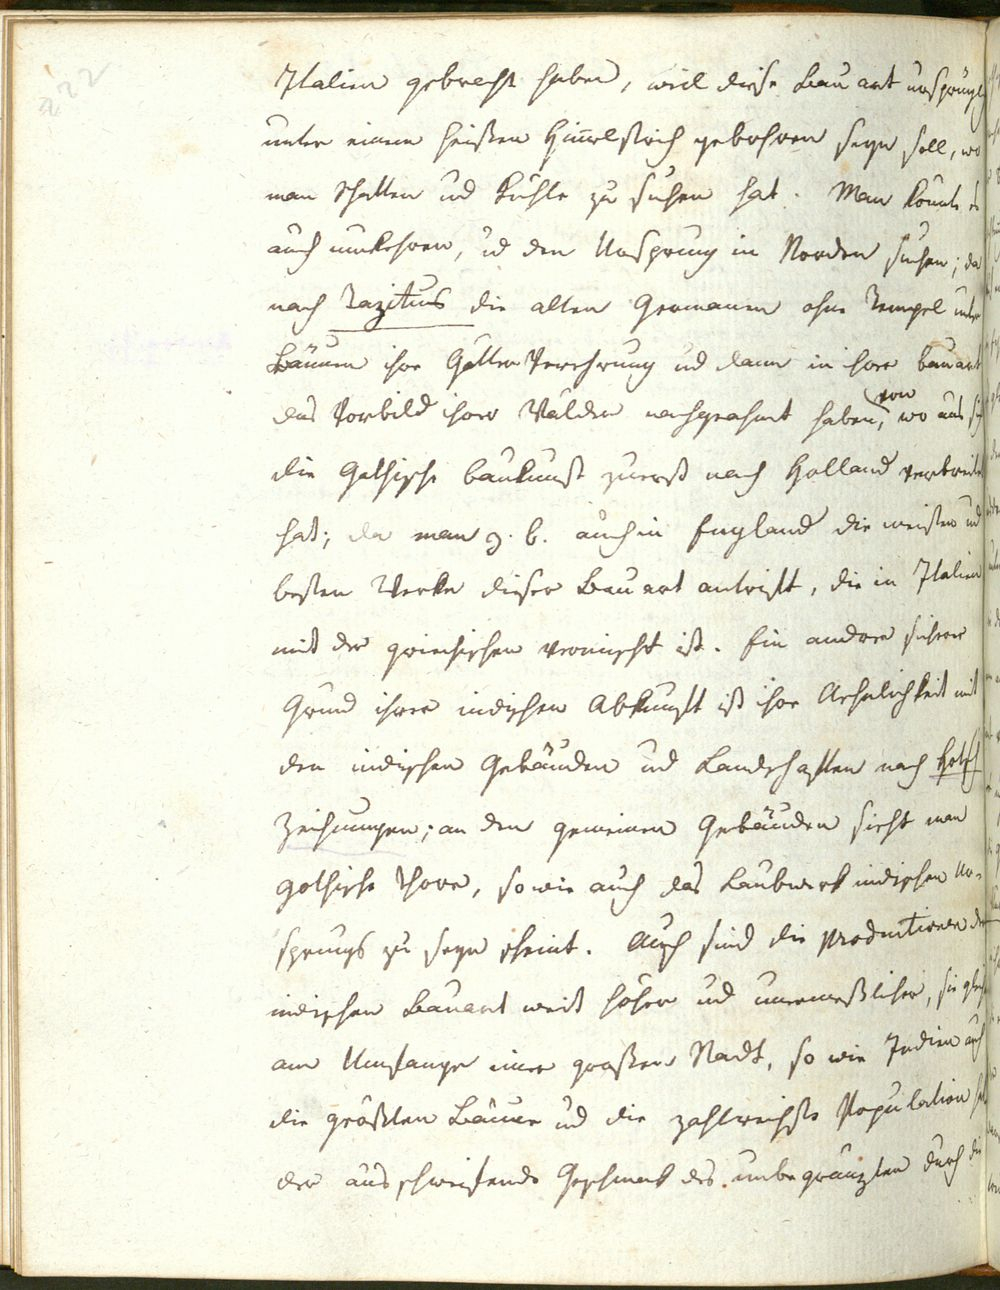 222
Italien gebracht haben, weil diese Bau art ursprüngl
unter einem heißen Him̅elstrich gebohren seyn soll, wo
man Schatten und Kühle zu suchen hat. Man könnte es
auch umkehren, und den Ursprung in Norden suchen; da
nach Tazitus die alten Germanen ohne Tempel unter
Bäumen ihre Götter Verehrung und dann in ihrer bauart
das Vorbild ihrer Wälder nachgeahmt haben, von wo aus sich
die Gothische baukunst zuerst nach Holland verbreitet
hat; da man z. b. auch in England die meisten und
besten Werke dieser Bauart antrifft, die in Italien
mit der griechischen vermischt ist. Ein andrer sichrer
Grund ihrer indischen Abkunft ist ihre Aehnlichkeit mit
den indischen Gebäuden und Landschaften nach
Zeichnungen; an den gemeinen Gebäuden sieht man
gothische Thore, so wie auch das Laubwerk indischen Ur-
sprungs zu seyn scheint. Auch sind die Productionen der
indischen Bauart weit höher und unermeßlicher, sie
am Umfange einer großen Stadt, so wie Indien auch
die größten Bäume und die zahlreichste Population hat
der ausschweifende Geschmack des unbegränzten durch die